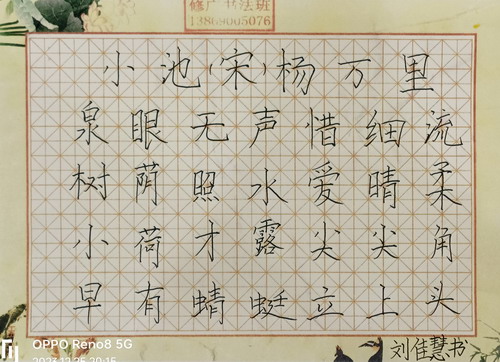 修广书法班
13869005076
小池(宋)杨万里
泉眼无声惜细流
树荫照水爱晴柔
小荷才露尖尖角
早有蜻蜓立上头
刘佳慧书
OPPO Reno8 5G
2023.12.25 20:15